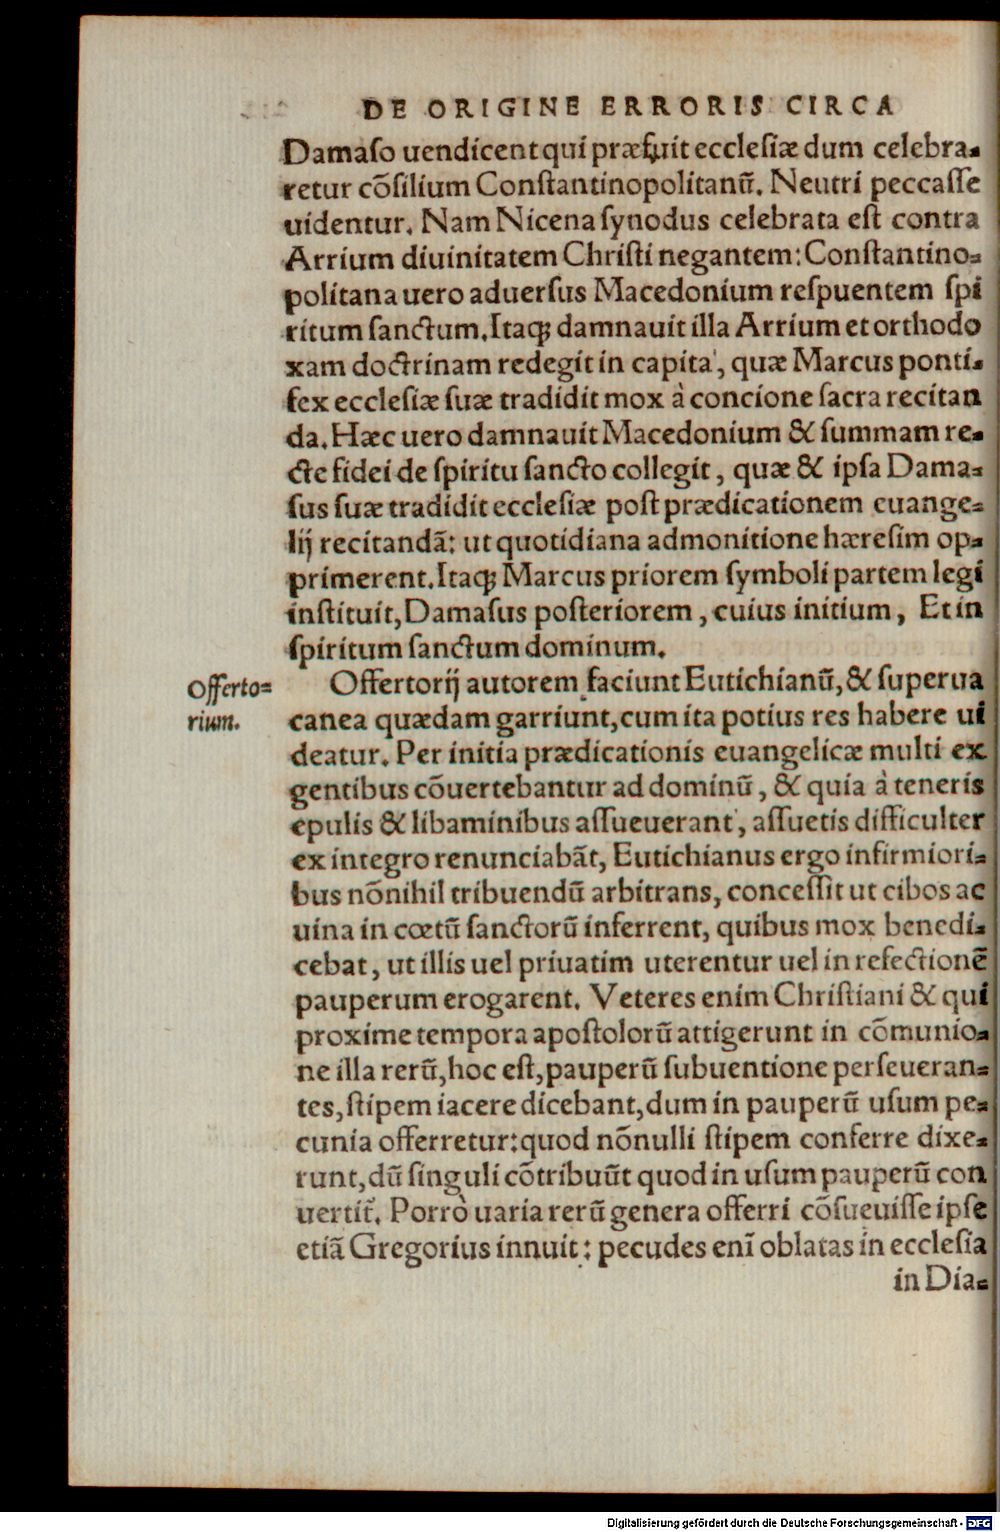 DE ORIGINE ERRORIS CIRCA
Damaſo uendicent qui præfuit eccleſiæ dum celebra-
retur cõſilium Conſtantinopolitanũ. Neutri peccaſſe
uidentur. Nam Nicena ſynodus celebrata eſt contra
Arrium diuinitatem Chriſti negantem: Conſtantino-
politana uero aduerſus Macedonium reſpuentem ſpi
ritum ſanctum. Itaqꝫ damnauit illa Arrium et orthodo
xam doctrinam redegit in capita, quæ Marcus ponti-
fex eccleſiæ ſuæ tradidit mox à concione ſacra recitan
da. Hæc uero damnauit Macedonium & ſummam re-
cte fidei de ſpiritu ſancto collegit, quæ & ipſa Dama-
ſus ſuæ tradidit eccleſiæ poſt prædicationem euange-
lij recitandã: ut quotidiana admonitione hæreſim op-
primerent. Itaqꝫ Marcus priorem ſymboli partem legi
inſtituit, Damaſus poſteriorem, cuius initium, Et in
ſpiritum ſanctum dominum.
Offerto-
rium.
Offertorij autorem faciunt Eutichianũ, & ſuperua
canea quædam garriunt, cum ita potius res habere ui
deatur. Per initia prædicationis euangelicæ multi ex
gentibus cõuertebantur ad dominũ, & quia à teneris
epulis & libaminibus aſſueuerant, aſſuetis difficulter
ex integro renunciabãt, Eutichianus ergo infirmiori-
bus nõnihil tribuendũ arbitrans, conceſſit ut cibos ac
uina in cœtũ ſanctorũ inferrent, quibus mox benedi-
cebat, ut illis uel priuatim uterentur uel in refectionẽ
pauperum erogarent. Veteres enim Chriſtiani & qui
proxime tempora apoſtolorũ attigerunt in cõmunio-
ne illa rerũ, hoc eſt, pauperũ ſubuentione perſeueran-
tes, ſtipem iacere dicebant, dum in pauperũ uſum pe-
cunia offerretur: quod nõnulli ſtipem conferre dixe-
runt, dũ ſinguli cõtribuũt quod in uſum pauperũ con
uertit᷑. Porrò uaria rerũ genera offerri cõſueuiſſe ipſe
etiã Gregorius innuit: pecudes enĩ oblatas in eccleſia
in Dia-
Digitalisierung gefördert durch die Deutsche Forschungsgemeinschaft - DFG